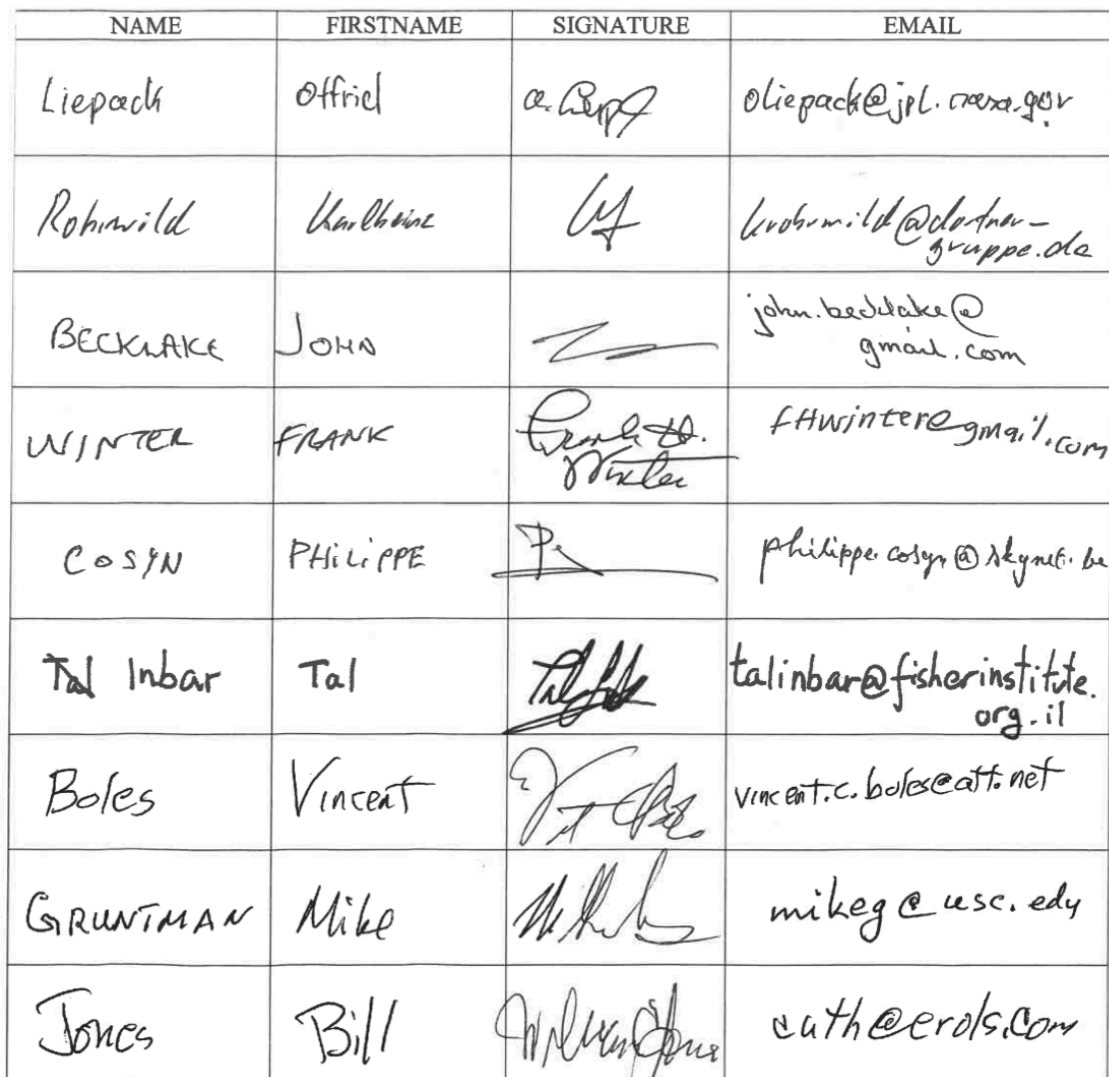 NAME FIRSTNAME SIGNATURE EMAIL
Liepack Otfrid oliepack@jpl.nasa.gov
Rohrwild Karlheinz krohrwild@
gruppe.de
BECKLAKE JOHN john.becklake@
gmail.com
WINTER FRANK Frank H. fHwinter@gmail.com
Winter
COSYN PHILIPPE philippe.cosyn@skynet.be
Tal Inbar Tal talinbar@fisherinstitute.
org.il
Boles Vincent vincent.c.boles@att.net
GRUNTMAN Mike mikeg@usc.edu
Jones Bill cath@erols.com